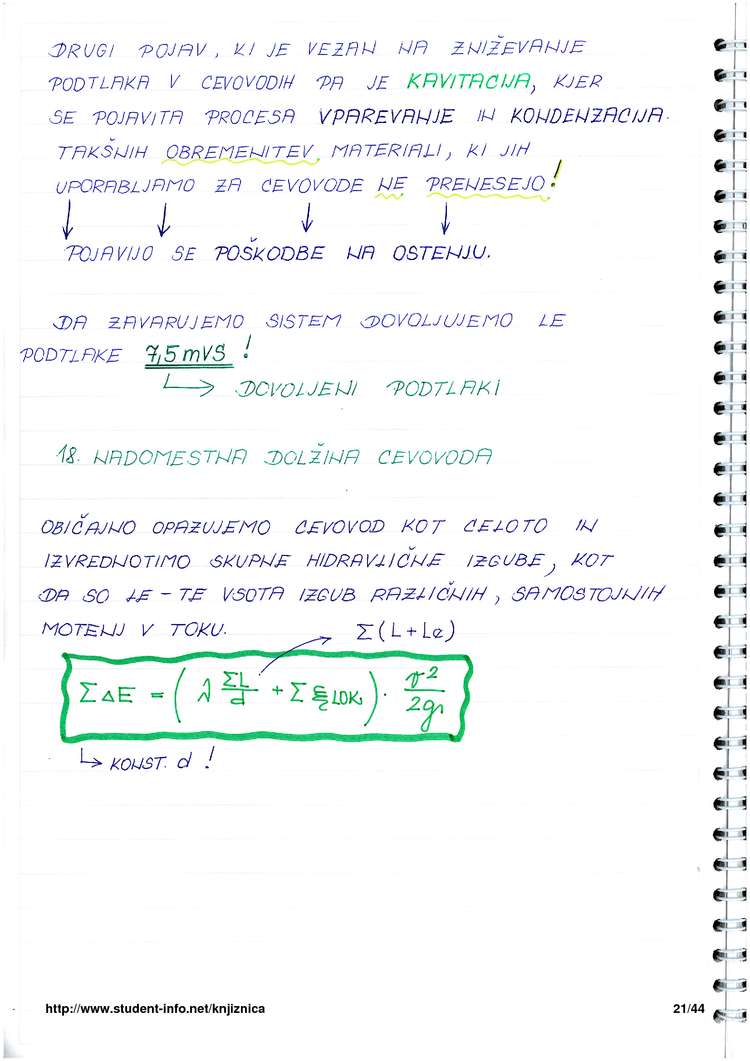 DRUGI POJAV, KI JE VEZAN NA ZNIŽEVANJE
PODTLAKA V CEVOVODIH PA JE KAVITACIJA, KJER
SE POJAVITA PROCESA VPAREVANJE IN KONDENZACIJA.
TAKŠNIH OBREMENITEV, MATERIALI, KI JIH
UPORABLJAMO ZA CEVOVODE NE PRENESEJO!
↓ ↓ ↓ ↓
POJAVIJO SE POŠKODBE NA OSTENJU.
DA ZAVARUJEMO SISTEM DOVOLJUJEMO LE
PODTLAKE 7,5 mVS !
↳ DOVOLJENI PODTLAKI
18. NADOMESTNA DOLŽINA CEVOVODA
OBIČAJNO OPAZUJEMO CEVOVOD KOT CELOTO IN
IZVREDNOTIMO SKUPNE HIDRAVLIČNE IZGUBE, KOT
DA SO LE-TE VSOTA IZGUB RAZLIČNIH, SAMOSTOJNIH
MOTENJ V TOKU. Σ(L+Le)
ΣΔE = (λ ΣL/d + Σ ξ LOK.) · v²/2g
↳ KONST. d !
http://www.student-info.net/knjiznica 21/44